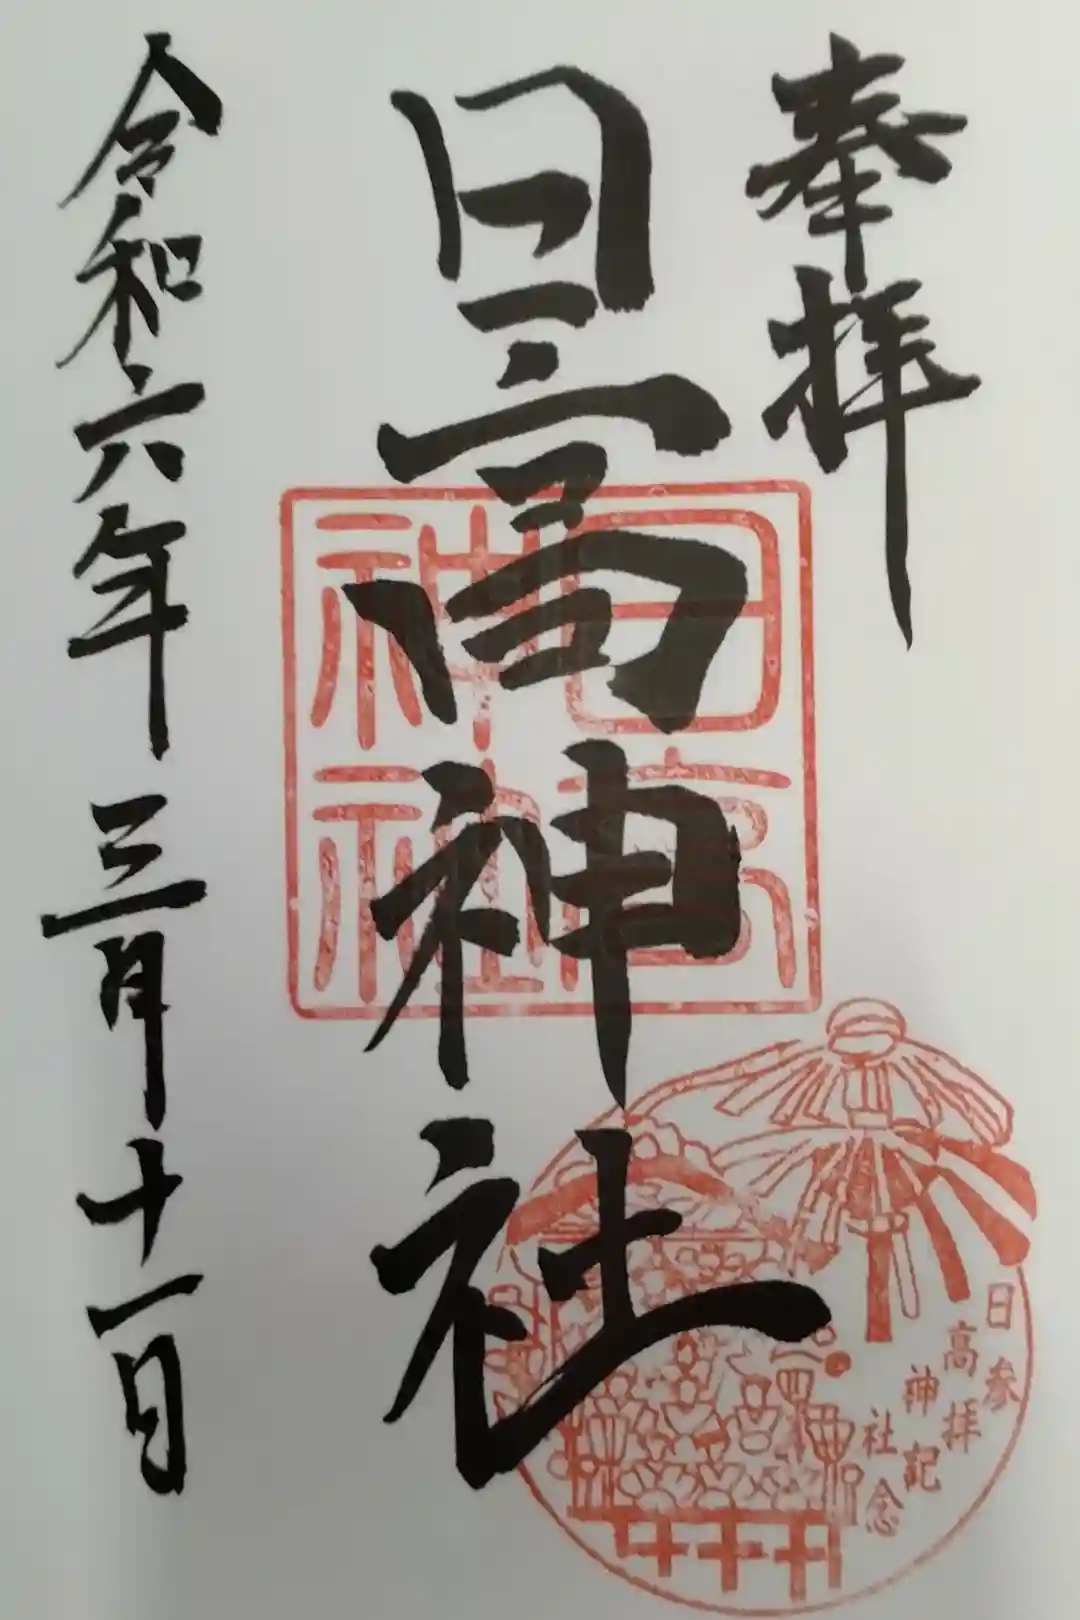 奉拝
日高神社
令和六年三月十一日
日高
神社
日高神社
参拝記念